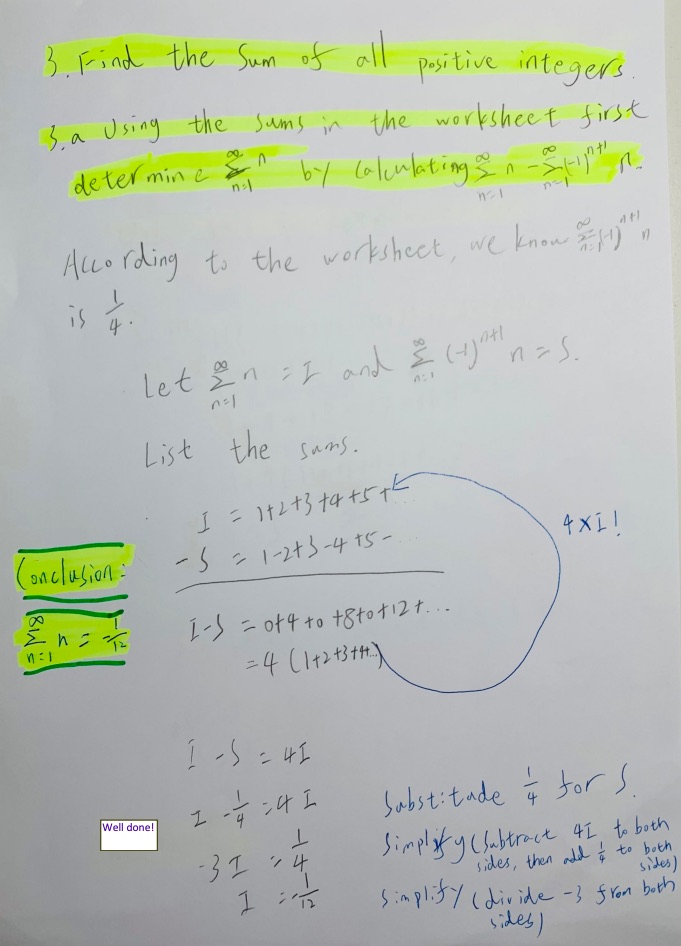 3. Find the Sum of all positive integers.
3.a Using the sums in the worksheet first
determine ∑_{n=1}^{∞} n by calculating ∑_{n=1}^{∞} n - ∑_{n=1}^{∞} (-1)^{n+1} n.
According to the worksheet, we know ∑_{n=1}^{∞} (-1)^{n+1} n
is 1/4.
Let ∑_{n=1}^{∞} n = I and ∑_{n=1}^{∞} (-1)^{n+1} n = S.
List the sums.
I = 1+2+3+4+5+...
- S = 1-2+3-4+5-...
4 x I!
I-S = 0+4+0+8+0+12+...
= 4 (1+2+3+4+...)
Conclusion:
∑_{n=1}^{∞} n = -1/12
I - S = 4I
I - 1/4 = 4 I
Substitude 1/4 for S.
-3 I = 1/4
Simplify (Subtract 4I to both
sides, then add 1/4 to both
sides)
I = -1/12
Simplify (divide -3 from both
sides)
Well done!